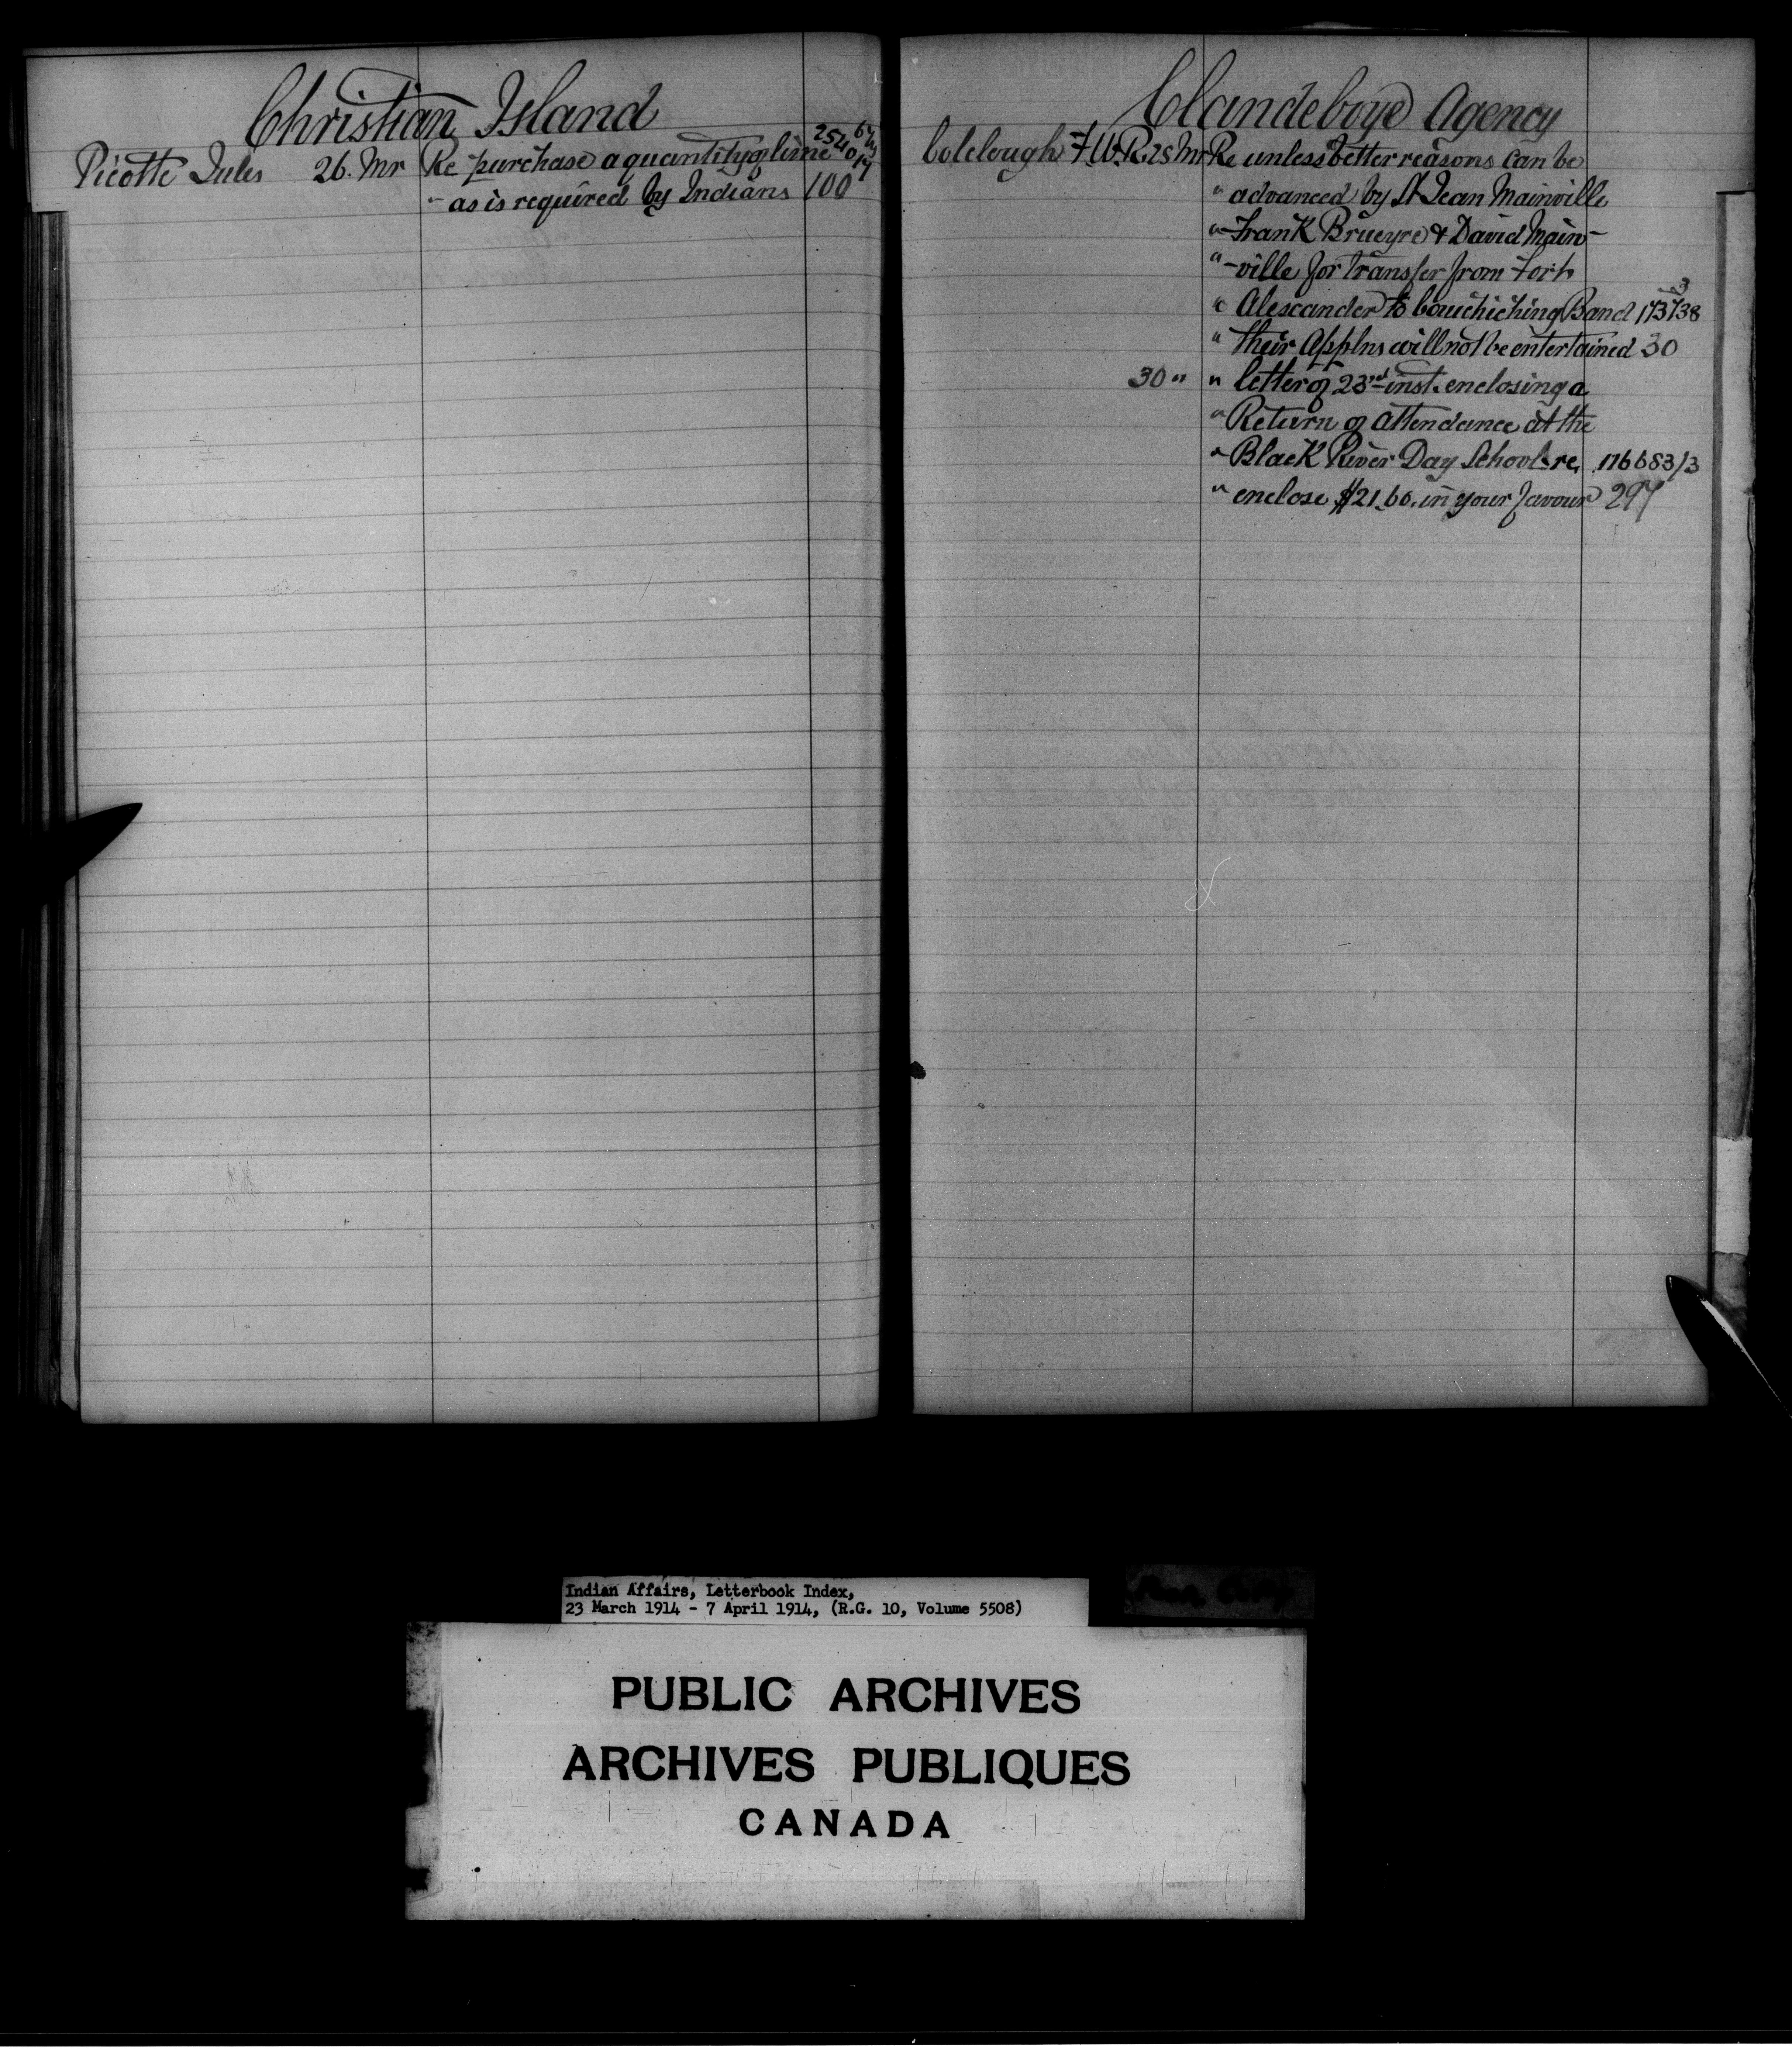 Christian Island
Picotte Jules 26. Mr Re purchase a quantity of lime
" as is required by Indians 100
Clandeboye Agency
Colclough F.W.R. 25 Mr Re unless better reasons can be
" advanced by St Jean Mainville
" Frank Brueyre & David Main-
" -ville for transfer from Fort
" Alexander to Couchiching Band 173738
" their Applns will not be entertained 30
30 " " letter of 23rd inst. enclosing a
" Return of attendance at the
" Black River Day School re, 176683/3
" enclose $21.60. in your favour 297
Indian Affairs, Letterbook Index,
23 March 1914 - 7 April 1914, (R.G. 10, Volume 5508)
PUBLIC ARCHIVES
ARCHIVES PUBLIQUES
CANADA